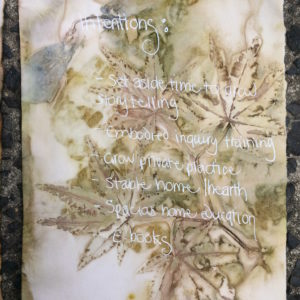 Intentions:
- Set aside time to grow
story telling
- Embodied inquiry training
- Grow private practice
- Stable home/hearth
- home education
& books